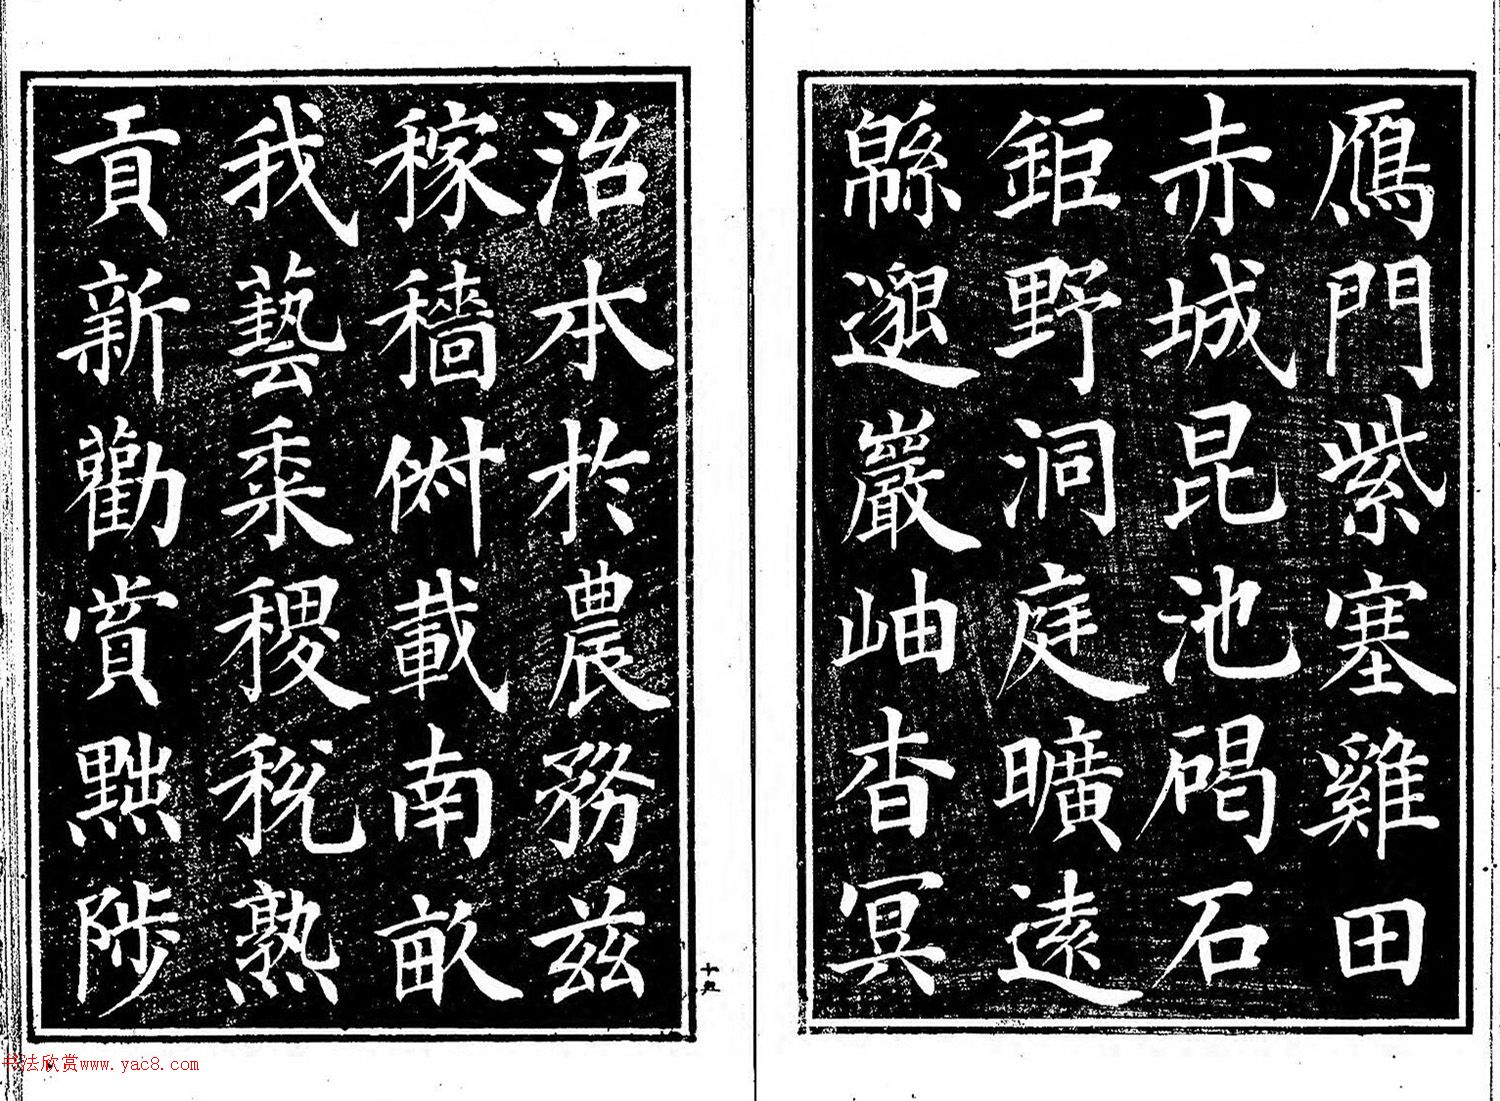 鴈門紫塞雞田
赤城昆池碣石
鉅野洞庭曠遠
緜邈巖岫杳冥
治本於農務茲
稼穡俶載南畝
我藝黍稷稅熟
貢新勸賞黜陟
十五
书法欣赏www.yac8.com